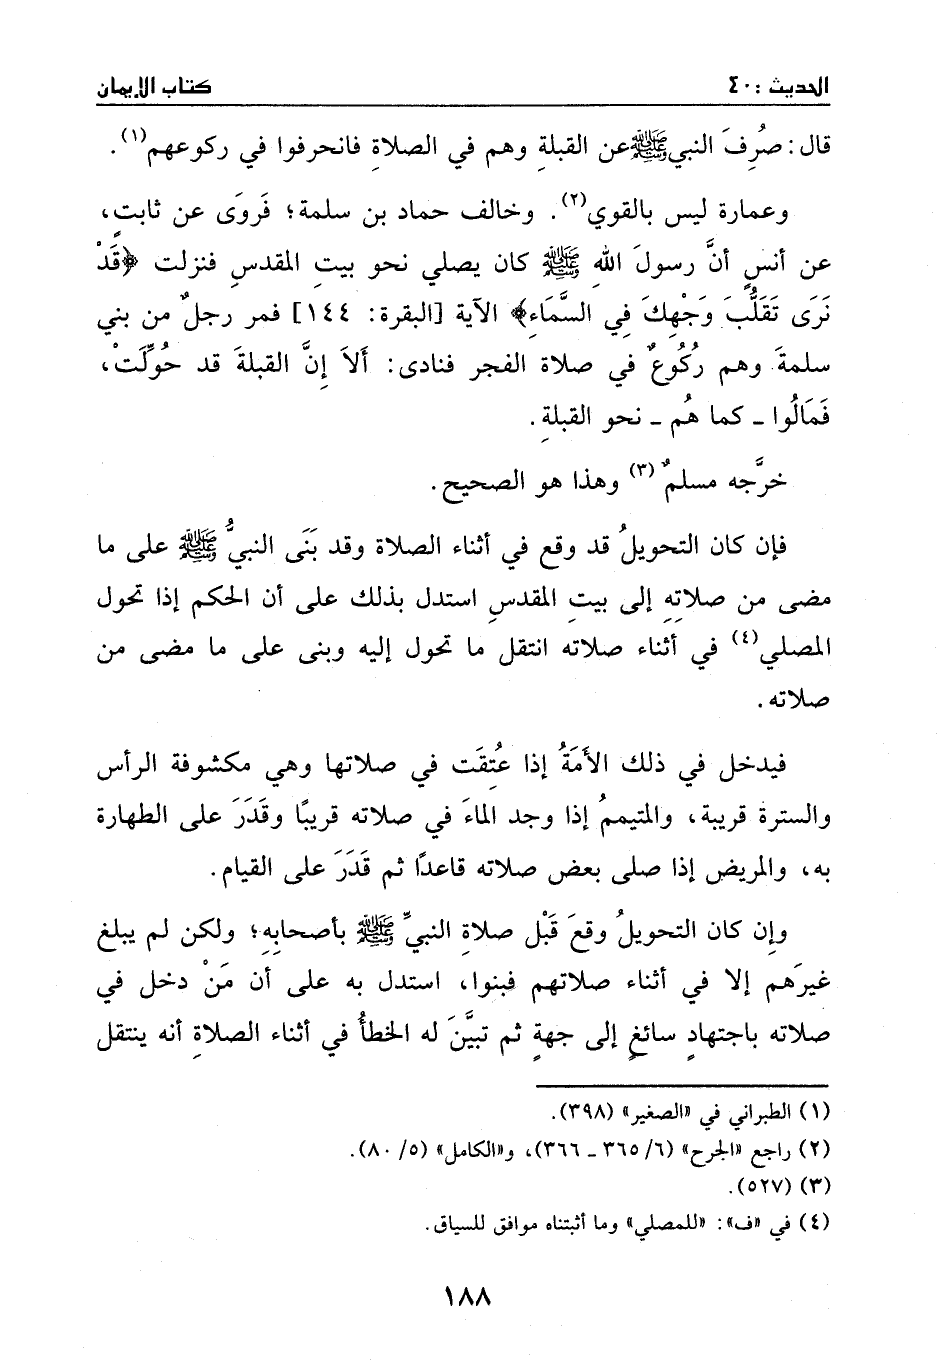 الحديث : ٤٠
كتاب الإيمان
قال: صُرِفَ النبي ﷺ عن القبلةِ وهم في الصلاةِ فانحرفوا في ركوعهم(١).
وعمارة ليس بالقوي(٢). وخالف حماد بن سلمة؛ فَروَى عن ثابتٍ،
عن أنسٍ أنَّ رسولَ اللهِ ﷺ كان يصلي نحو بيتِ المقدسِ فنزلت ﴿قَدْ
نَرَى تَقَلُّبَ وَجْهِكَ فِي السَّمَاءِ﴾ الآية [البقرة: ١٤٤] فمر رجلٌ من بني
سلمةَ وهم رُكُوعٌ في صلاة الفجر فنادى: أَلاَ إِنَّ القبلةَ قد حُوِّلَتْ،
فَمَالُوا ـ كما هُم ـ نحو القبلةِ.
خرَّجه مسلمٌ(٣) وهذا هو الصحيح.
فإن كان التحويلُ قد وقع في أثناء الصلاة وقد بَنَى النبيُّ ﷺ على ما
مضى من صلاتِهِ إلى بيتِ المقدسِ استدل بذلك على أن الحكم إذا تحول
المصلي(٤) في أثناء صلاته انتقل ما تحول إليه وبنى على ما مضى من
صلاته.
فيدخل في ذلك الأمَةُ إذا عُتِقَت في صلاتها وهي مكشوفة الرأس
والسترة قريبة، والمتيممُ إذا وجد الماءَ في صلاته قريبًا وقَدَرَ على الطهارة
به، والمريض إذا صلى بعض صلاته قاعدًا ثم قَدَرَ على القيام.
وإن كان التحويلُ وقعَ قَبْل صلاةِ النبيِّ ﷺ بأصحابِهِ؛ ولكن لم يبلغ
غيرَهم إلا في أثناء صلاتهم فبنوا، استدل به على أن مَنْ دخل في
صلاته باجتهادٍ سائغٍ إلى جهةٍ ثم تبيَّنَ له الخطأُ في أثناء الصلاةِ أنه ينتقل
(١) الطبراني في «الصغير» (٣٩٨).
(٢) راجع «الجرح» (٦/ ٣٦٥ ـ ٣٦٦)، و«الكامل» (٥/ ٨٠).
(٣) (٥٢٧).
(٤) في «ف»: «للمصلي» وما أثبتناه موافق للسياق.
١٨٨